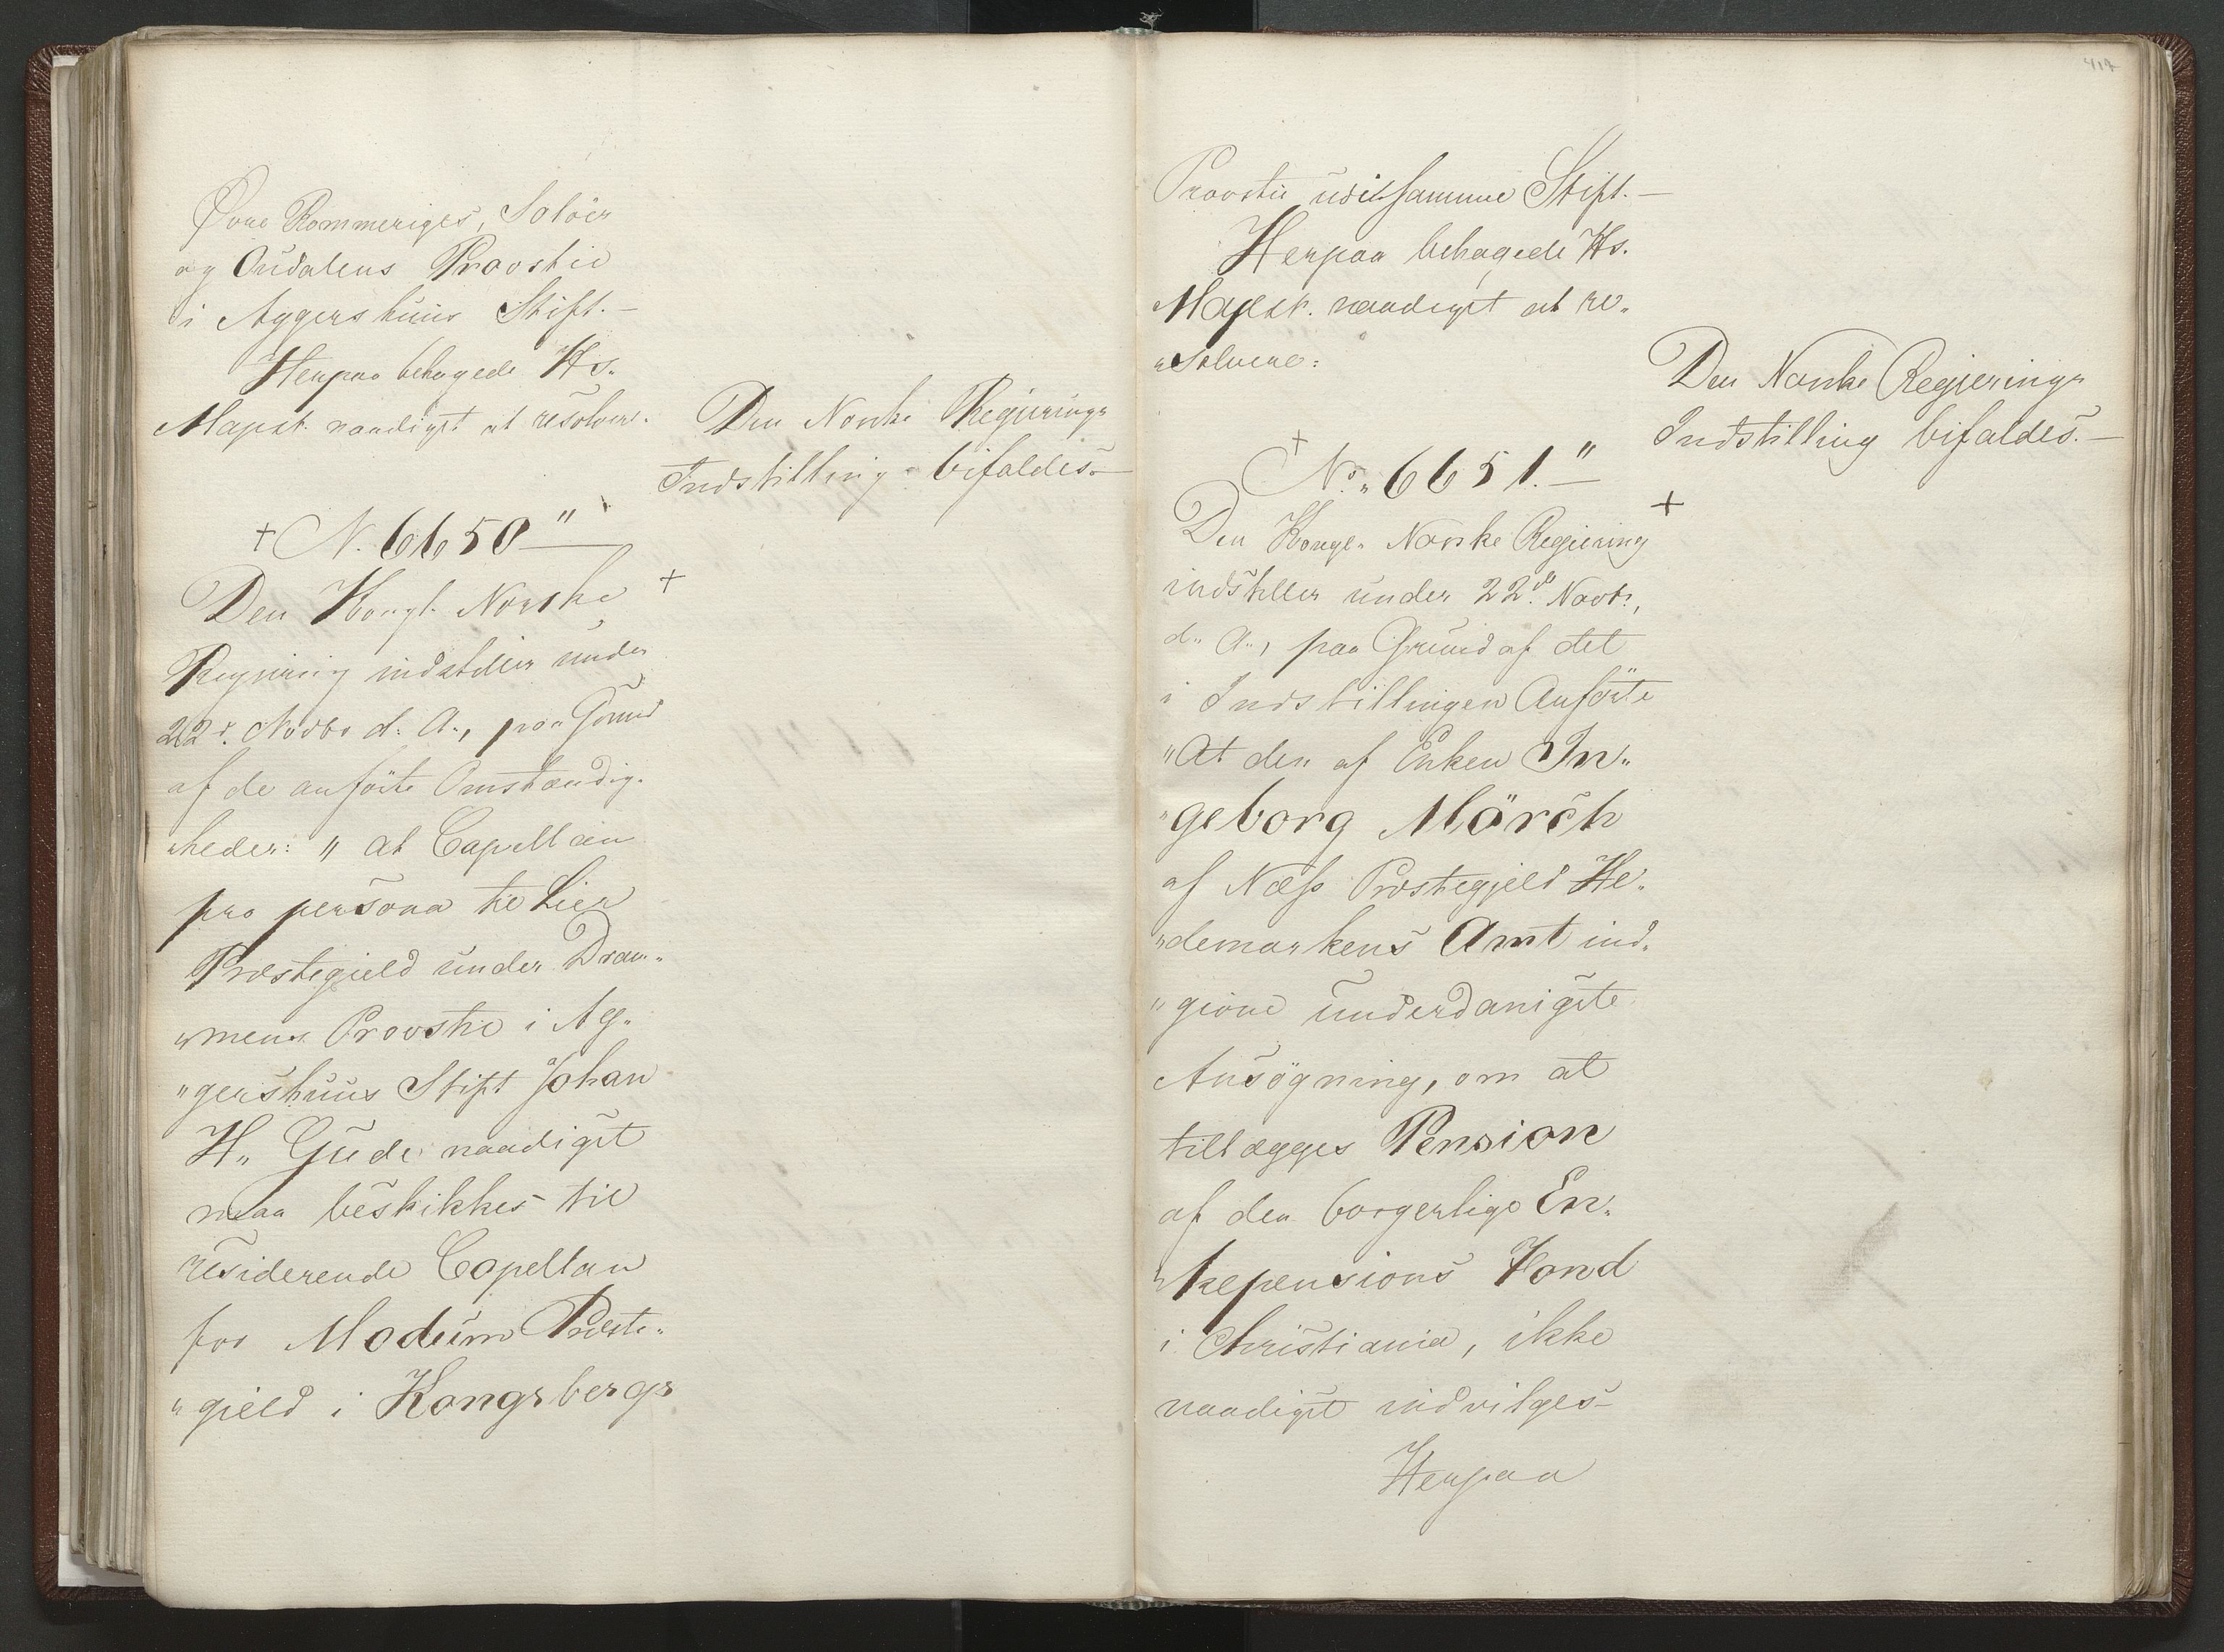 Øvre Rommeriges, Solöer
og Oudalens Provstie
i Aggershuus Stift.-
Herpaa behagede Hs.
Majest. naadigst at resolvere.
Den Norske Regjerings
Indstilling bifaldes.-
+ N. 6650"
Den Kongl. Norske +
Regjering indstiller under
22d. Novbr d. A., paa Grund
af de anförte Omstændig-
"heder: " at Capellan
pro persona til Lier
Præstegjeld under Dram-
"mens Provstie i Ag-
"gershuus Stift Johan
H. Gude naadigst
maa beskikkes til
residerende Capellan
for Modum Præste-
"gield i Kongsbergs
417
Provstie udi samme Stift.-
Herpaa behagede Hs.
Majest. naadigst at re-
"solvere:
Den Norske Regjerings
Indstilling bifaldes.-
+ No. 6651."
Den Kongl. Norske Regjering +
indstiller under 22d. Novbr.,
d. A., paa Grund af det
i Indstillingen Anförte
"At den af Enken In-
"geborg Mörch
af Næss Præstegjeld He-
"demarkens Amt ind-
"givne underdanigste
Ansögning, om at
tillægges Pension
af den borgerlige En-
"kepensions Fond
i Christiania, ikke
naadigst indvilges-
Herpaa